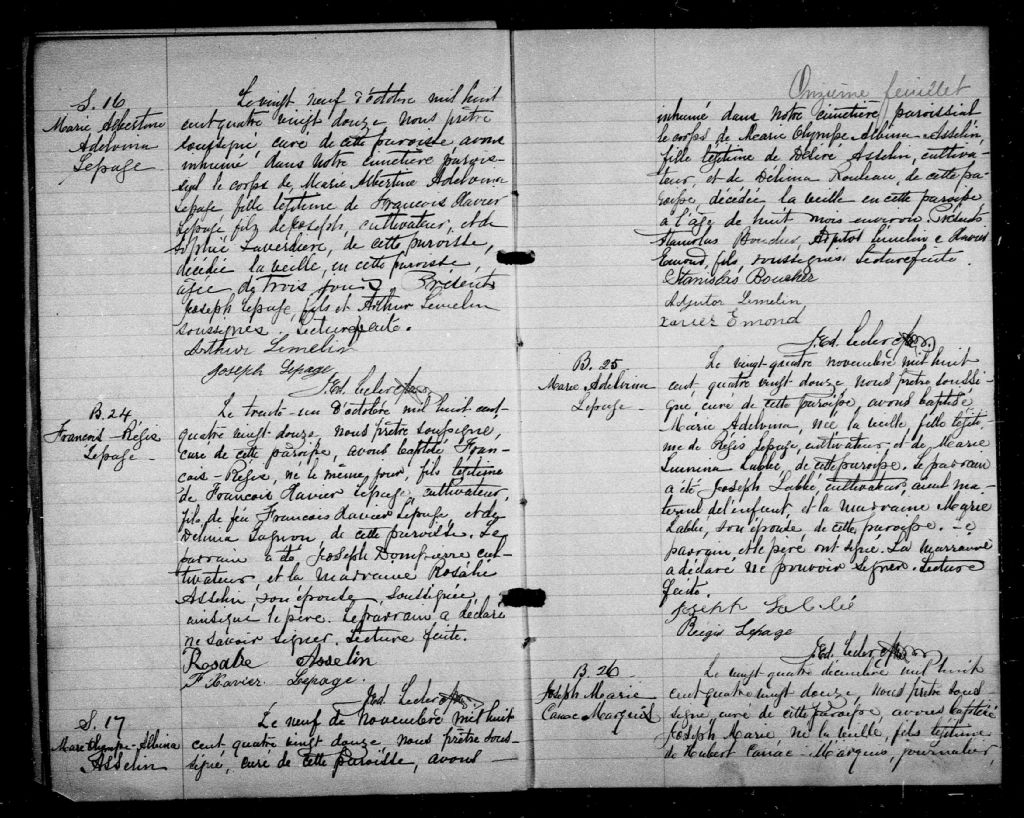 S. 16
Marie Albertine
Adelvina
Lepage
Le vingt neuf d'octobre mil huit
cent quatre vingt douze, nous prêtre
soussigné, curé de cette paroisse avons
inhumé, dans notre cimetière parois-
sial le corps de Marie Albertine Adelvina
Lepage, fille légitime de Francois Xavier
Lepage fils de Joseph, cultivateur, et de
Sophie Laverdière, de cette paroisse,
décédée la veille, en cette paroisse,
agée de trois jours. Présents
Joseph Lepage, fils et Arthur Lemelin
soussignés. Lecture faite.
Arthur Lemelin
Joseph Lepage
J. Ed. Leclerc
B. 24
Francois-Régis
Lepage
Le trente-un d'octobre mil huit cent
quatre vingt-douze, nous prêtre soussigné,
curé de cette paroisse, avons baptisé Fran-
cois-Régis, né le même jour, fils légitime
de Francois Xavier Lepage, cultivateur,
fils de feu Francois Xavier Lepage et de
Delima Gagnon, de cette paroisse. Le
parrain a été Joseph Dompierre cul-
tivateur et la marraine Rosalie
Asselin, son épouse, soussignée,
ainsi que le père. Le parrain a déclaré
ne savoir signer. Lecture faite.
Rosalie Asselin
F Xavier Lepage.
J. Ed. Leclerc
S. 17
Marie Olympe-Albina
Asselin
Le neuf de novembre mil huit
cent quatre vingt douze, nous prêtre sous-
signé, curé de cette paroisse, avons
Onzième feuillet
inhumé dans notre cimetière paroissial
le corps de Marie Olympe Albina Asselin,
fille légitime de Désiré Asselin, cultiva-
teur, et de Délima Rouleau, de cette pa-
roisse, décédée la veille en cette paroisse,
à l'âge de huit mois environ. Présents
Stanislas Boucher, Adjutor Lemelin & Xavier
Emond, fils, soussignés. Lecture faite.
Stanislas Boucher
Adjutor Lemelin
Xavier Emond
J. Ed. Leclerc
B. 25
Marie Adelvina
Lepage
Le vingt quatre novembre mil huit
cent quatre vingt douze, nous prêtre soussi-
gné, curé de cette paroisse, avons baptisé
Marie Adelvina, née la veille, fille légiti-
me de Régis Lepage, cultivateur, et de Marie
Labbé, de cette paroisse. Le parrain
a été Joseph Labbé cultivateur, aieul ma-
ternel de l'enfant, et la marraine Marie
Labbé, son épouse de cette paroisse. Le
parrain et le père ont signé. La marraine
a déclaré ne pouvoir signer. Lecture
faite.
Joseph Labbé
Régis Lepage
J. Ed. Leclerc
B. 26
Joseph Marie
Canac Marquis
Le vingt quatre décembre mil huit
cent quatre vingt douze, nous prêtre sous
signé curé de cette paroisse avons baptisé
Joseph Marie né la veille, fils légitime
de Hubert Canac-Marquis, journalier,